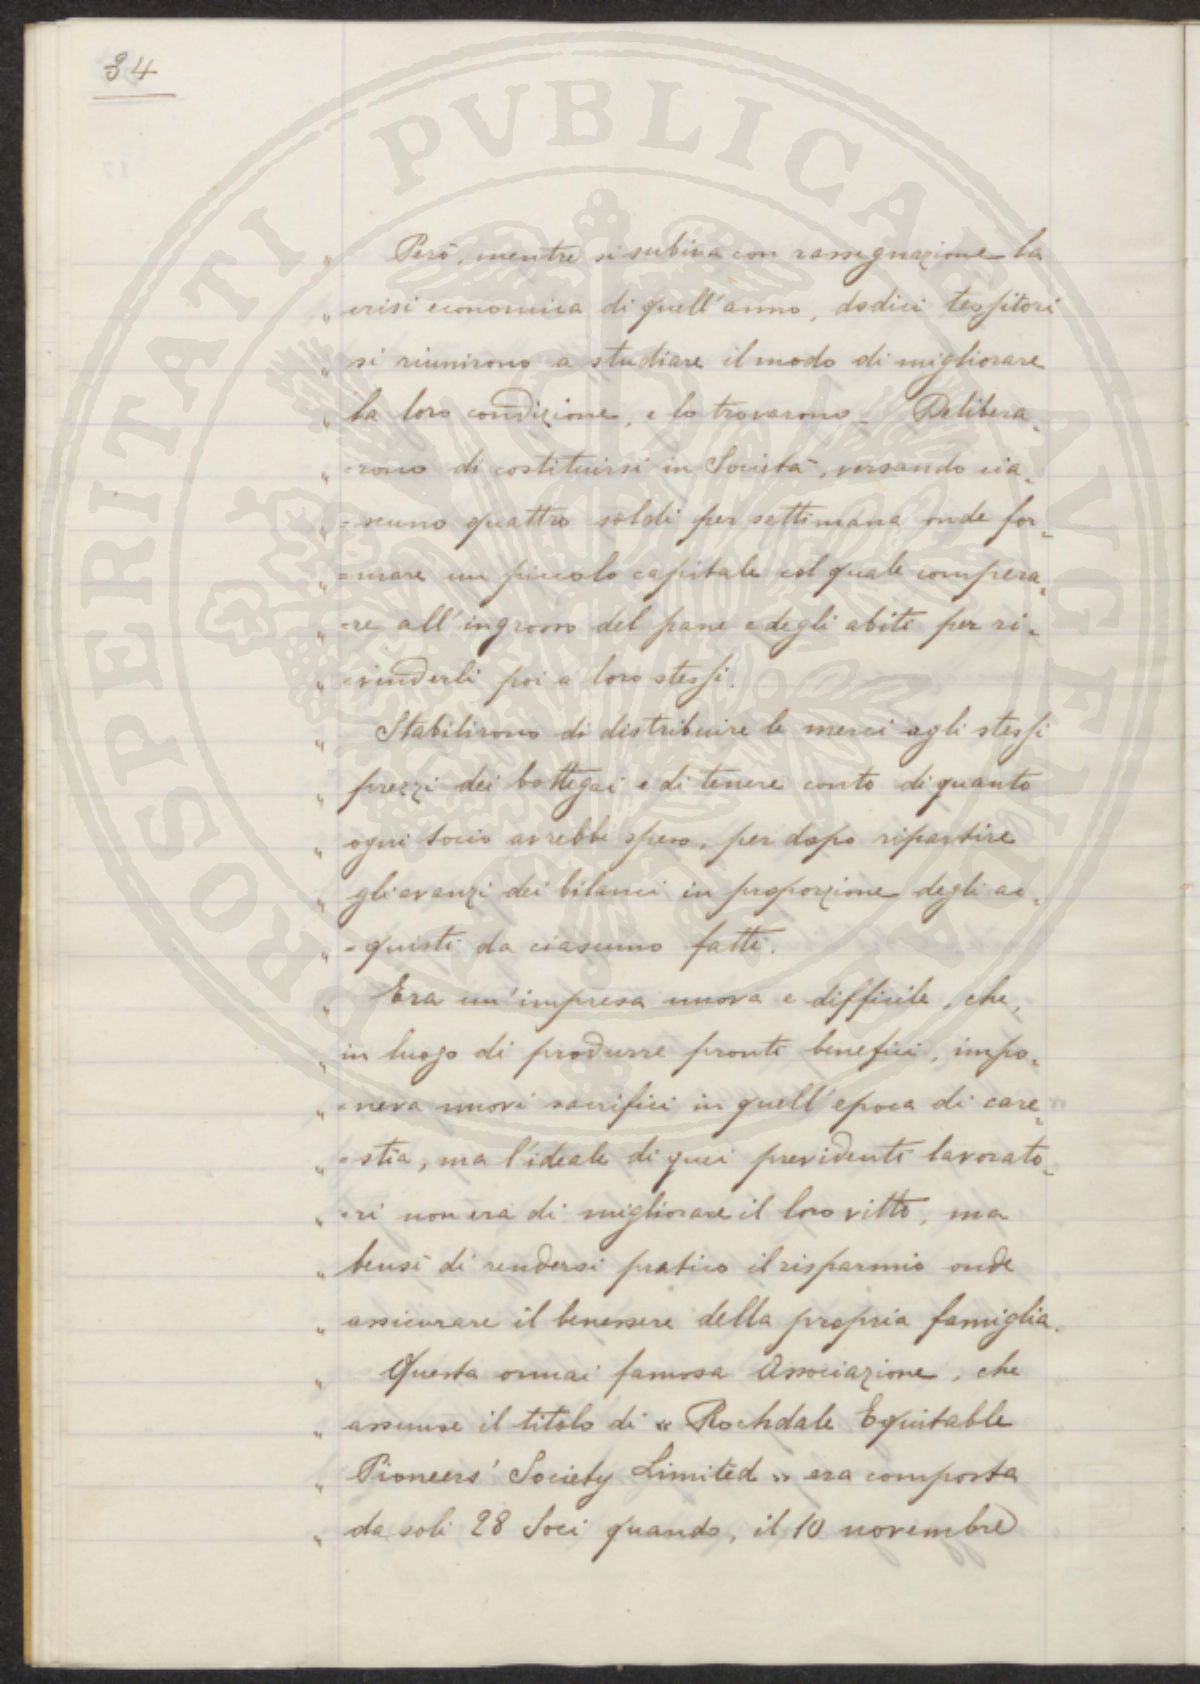 34
PVBLICAE
PROSPERITATI
AVGENDAE
„ Però, mentre si subiva con rassegnazione la
„ crisi economica di quell'anno, dodici tessitori
„ si riunirono a studiare il modo di migliorare
„ la loro condizione, e lo trovarono. Delibera-
„ =rono di costituirsi in Società, versando cia-
„ =scuno quattro soldi per settimana onde for-
„ =mare un piccolo capitale col quale compera-
„ =re all'ingrosso del pane e degli abiti per ri-
„ =venderli poi a loro stessi.
„ Stabilirono di distribuire le merci agli stessi
„ prezzi dei bottegai e di tenere conto di quanto
„ ogni socio avrebbe speso, per dopo ripartire
„ gli avanzi dei bilanci in proporzione degli ac-
„ =quisti da ciascuno fatti.
„ Era un'impresa nuova e difficile, che,
„ in luogo di produrre pronti benefici, impo-
„ =neva nuovi sacrifici in quell'epoca di care-
„ =stia, ma l'ideale di quei previdenti lavorato-
„ =ri non era di migliorare il loro vitto, ma
„ bensì di rendersi pratico il risparmio onde
„ assicurare il benessere della propria famiglia.
„ Questa ormai famosa Associazione, che
„ assunse il titolo di « Rochdale Equitable
„ Pioneers' Society Limited » era composta
„ da soli 28 Soci quando, il 10 novembre